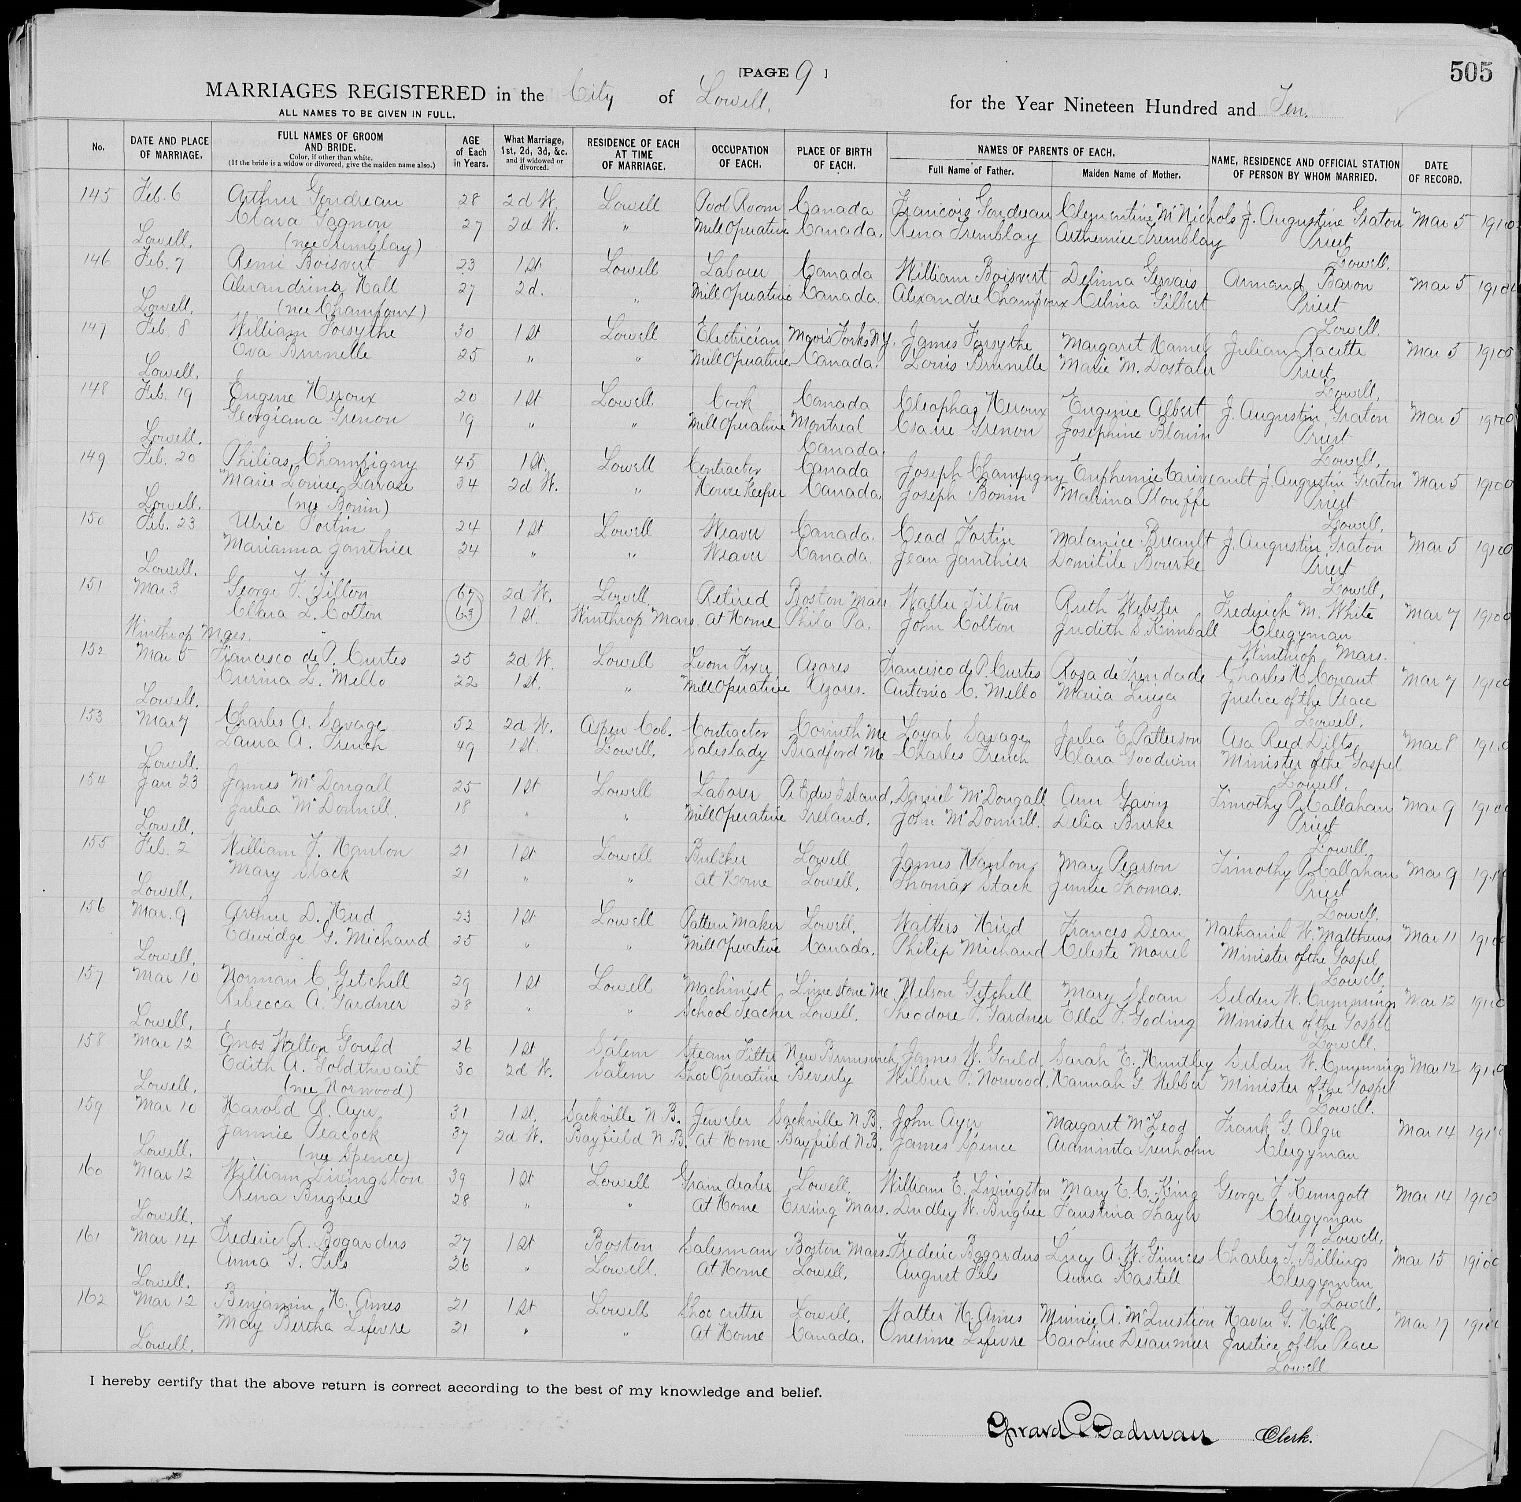 [PAGE 9 ]
505
MARRIAGES REGISTERED in the City of Lowell, for the Year Nineteen Hundred and Ten.
ALL NAMES TO BE GIVEN IN FULL.
No. DATE AND PLACE OF MARRIAGE. FULL NAMES OF GROOM AND BRIDE. Color, if other than white. (If the bride is a widow or divorced, give the maiden name also.) AGE of Each in Years. What Marriage, 1st, 2d, 3d, &c. and if widowed or divorced. RESIDENCE OF EACH AT TIME OF MARRIAGE. OCCUPATION OF EACH. PLACE OF BIRTH OF EACH. NAMES OF PARENTS OF EACH. Full Name of Father. Maiden Name of Mother. NAME, RESIDENCE AND OFFICIAL STATION OF PERSON BY WHOM MARRIED. DATE OF RECORD.
145 Feb. 6 Arthur Gendreau 28 2d W. Lowell Pool Room Canada Francois Gendreau Clementine McNichols J. Augustine Graton Mar 5 1910
Clara Gagnon 27 2d W. " Mill Operative Canada. Rena Tremblay Arthemise Tremblay Priest
Lowell. (nee Tremblay) Lowell.
146 Feb. 7 Remi Boisvert 23 1st Lowell Laborer Canada William Boisvert Delima Gervais Armand Baron Mar 5 1910
Alexandrina Hall 27 2d. " Mill Operative Canada. Alexandre Champoux Celina Gilbert Priest
Lowell. (nee Champoux) Lowell.
147 Feb. 8 William Forsythe 30 1st Lowell Electrician Moores Forks N.Y. James Forsythe Margaret Hamel Julian Racette Mar 5 1910
Eva Brunelle 25 " " Mill Operative Canada. Louis Brunelle Marie M. Dostaler Priest
Lowell. Lowell.
148 Feb. 19 Eugene Heroux 20 1st Lowell Cook Canada Cleophas Heroux Eugenie Albert J. Augustin Graton Mar 5 1910
Georgiana Grenon 19 " " Mill Operative Montreal Csaire Grenon Josephine Blouin Priest
Lowell. Canada Lowell.
149 Feb. 20 Philias Champigny 45 1st. Lowell Contractor Canada Joseph Champigny Euphemie Carivcault J. Augustin Graton Mar 5 1910
Marie Louise Lavoie 34 2d W. " House Keeper Canada. Joseph Bonin Malvina Plouffe Priest
Lowell. (nee Bonin) Lowell.
150 Feb. 23 Ulric Fortin 24 1st Lowell Weaver Canada. Cead Fortin Malanice Breault J. Augustin Graton Mar 5 1910
Marianna Janthier 24 " " Weaver Canada. Jean Janthier Domitile Bourke Priest
Lowell. Lowell.
151 Mar 3 George F. Tilton 67 2d W. Lowell Retired Boston Mass Walter Tilton Ruth Webster Frederick M. White Mar 7 1910
Clara L. Colton 63 1st. Winthrop Mass. At Home Phila Pa. John Colton Judith S. Kimball Clergyman
Winthrop Mass. Winthrop Mass.
152 Mar 5 Francisco de P. Curtes 25 2d W. Lowell Loom Fixer Azores Francisco de P. Curtes Rosa de Trindade Charles H. Conant Mar 7 1910
Eurina L. Mello 22 1st. " Mill Operative Azores. Antonio C. Mello Maria Luiza Justice of the Peace
Lowell. Lowell.
153 Mar 7 Charles A. Savage 52 2d W. Aspen Col. Contractor Corinth Me Loyal Savage Julia E. Patterson Asa Reed Dilts Mar 8 1910
Laura A. French 49 1st. Lowell. Saleslady Bradford Me Charles French Clara Goodwin Minister of the Gospel
Lowell. Lowell.
154 Jan 23 James McDougall 25 1st Lowell Laborer P. Edw Island. Daniel McDougall Ann Gavin Timothy P. Callahan Mar 9 1910
Julia McDonnell. 18 " " Mill Operative Ireland. John McDonnell. Delia Burke Priest
Lowell. Lowell.
155 Feb. 2 William J. Hanlon 21 1st Lowell Butcher Lowell James Hanlon Mary Pearson Timothy P. Callahan Mar 9 1910
Mary Stack 21 " " At Home Lowell. Thomas Stack Jennie Thomas. Priest
Lowell. Lowell.
156 Mar. 9 Arthur D. Hurd 23 1st Lowell Pattern Maker Lowell. Walters Hurd Frances Dean Nathaniel W. Matthews Mar 11 1910
Edwidge G. Michaud 25 " " Mill Operative Canada. Philip Michaud Celeste Morel Minister of the Gospel
Lowell. Lowell.
157 Mar 10 Norman C. Getchell 29 1st Lowell Machinist Limestone Me. Nelson Getchell Mary Sloan Selden W. Cummings Mar 12 1910
Rebecca A. Gardner 28 " " School Teacher Lowell. Theodore P. Gardner Ella F. Goding Minister of the Gospel
Lowell. Lowell.
158 Mar 12 Enos Wilton Gould 26 1st Salem Steam Fitter New Brunswick James W. Gould Sarah E. Huntley Selden W. Cummings Mar 12 1910
Edith A. Goldthwait 30 2d W. Salem Shoe Operative Beverly Wilbur F. Norwood Hannah G. Webber Minister of the Gospel
Lowell. (nee Norwood) Lowell.
159 Mar 10 Harold R. Ayer 31 1st. Sackville N.B. Jeweler Sackville N.B. John Ayer Margaret McLeod Frank G. Alger Mar 14 1910
Jannie Peacock 37 2d W. Bayfield N.B. At Home Bayfield N.B. James Spence Araminta Trenholm Clergyman
Lowell. (nee Spence)
160 Mar 12 William Livingston 39 1st Lowell Grain dealer Lowell. William E. Livingston Mary E. C. King George F. Kenngott Mar 14 1910
Rena Bugbee 28 " " At Home Erving Mass. Lindley W. Bugbee Faustina Thayer Clergyman
Lowell. Lowell.
161 Mar 14 Frederic R. Bogardus 27 1st Boston Salesman Boston Mass. Frederic Bogardus Lucy A. W. Ginness Charles T. Billings Mar 15 1910
Anna G. Fels 26 " Lowell. At Home Lowell. August Fels Anna Kastell Clergyman
Lowell. Lowell.
162 Mar 12 Benjamin H. Ames 21 1st Lowell Shoe cutter Lowell. Walter H. Ames Minnie A. McQuestion Haven G. Hill Mar 17 1910
May Bertha Lefevre 21 " " At Home Canada. Onesime Lefevre Caroline Desaumier Justice of the Peace
Lowell. Lowell
I hereby certify that the above return is correct according to the best of my knowledge and belief.
Girard P. Dadman Clerk.